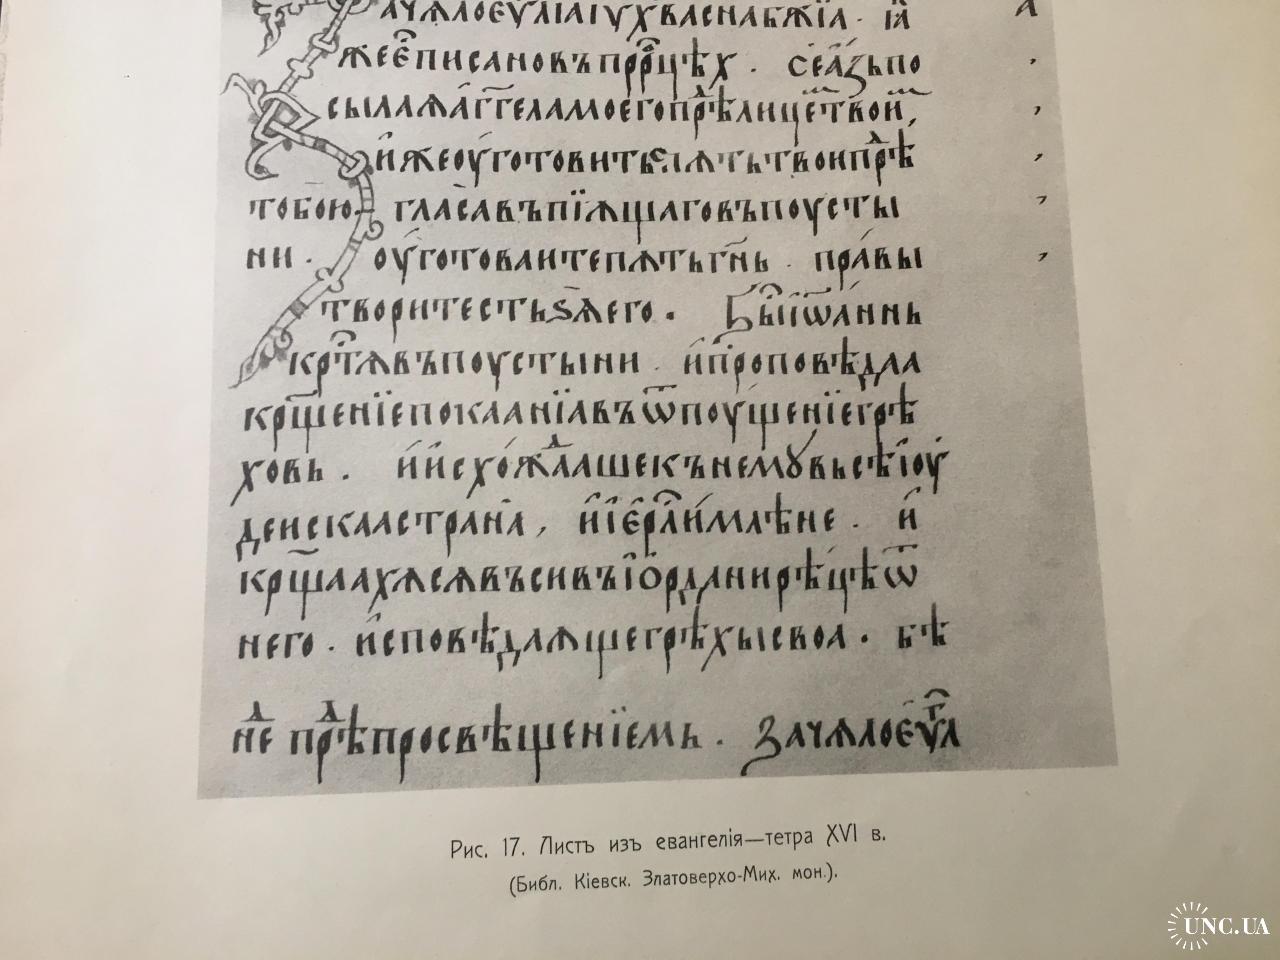 ачѧлоеѵⷢ҇лїаїѵхванабж҃їа· ꙗ҆
А
жее҆ⷭ҇писановъпррⷪ҇цѣх· сеазъпо
сылаѧа҆гг҃еламоегопрⷣѣлицеⷨтвоиⷨ,
и҆жеоуготовитьпѫтьтвоипрⷣѣ
тобою· гласавъпїѧщаговъпоусты
ни· оуготоваитепѫтьгн҃ь· правы
творитестьѕѧего· Бы́ⷭ҇їѡ҆аннь
крⷭ҇тѧвъпоустыни· и҆проповѣдаа
крⷳ҇щенїепокаанїавъѿпоущенїегрѣ
ховь· и҆и҆схождⷣаашекънемꙋвьсѣїоу
деискаастрана, и҆їе҆рⷭ҇лимлѣне· и҆
крⷳ҇щаахѫсѧвъсивъїѻрданирѣцѣѿ
него· и҆споведаѧщегрѣхысвоа· бѣ
нⷣе прⷣѣпросвѣщенїемь· Зачѧлоеѵⷢ҇л
Рис. 17. Листъ изъ евангелія—тетра XVI в.
(Библ. Кіевск. Златоверхо-Мих. мон.).
UNC.UA